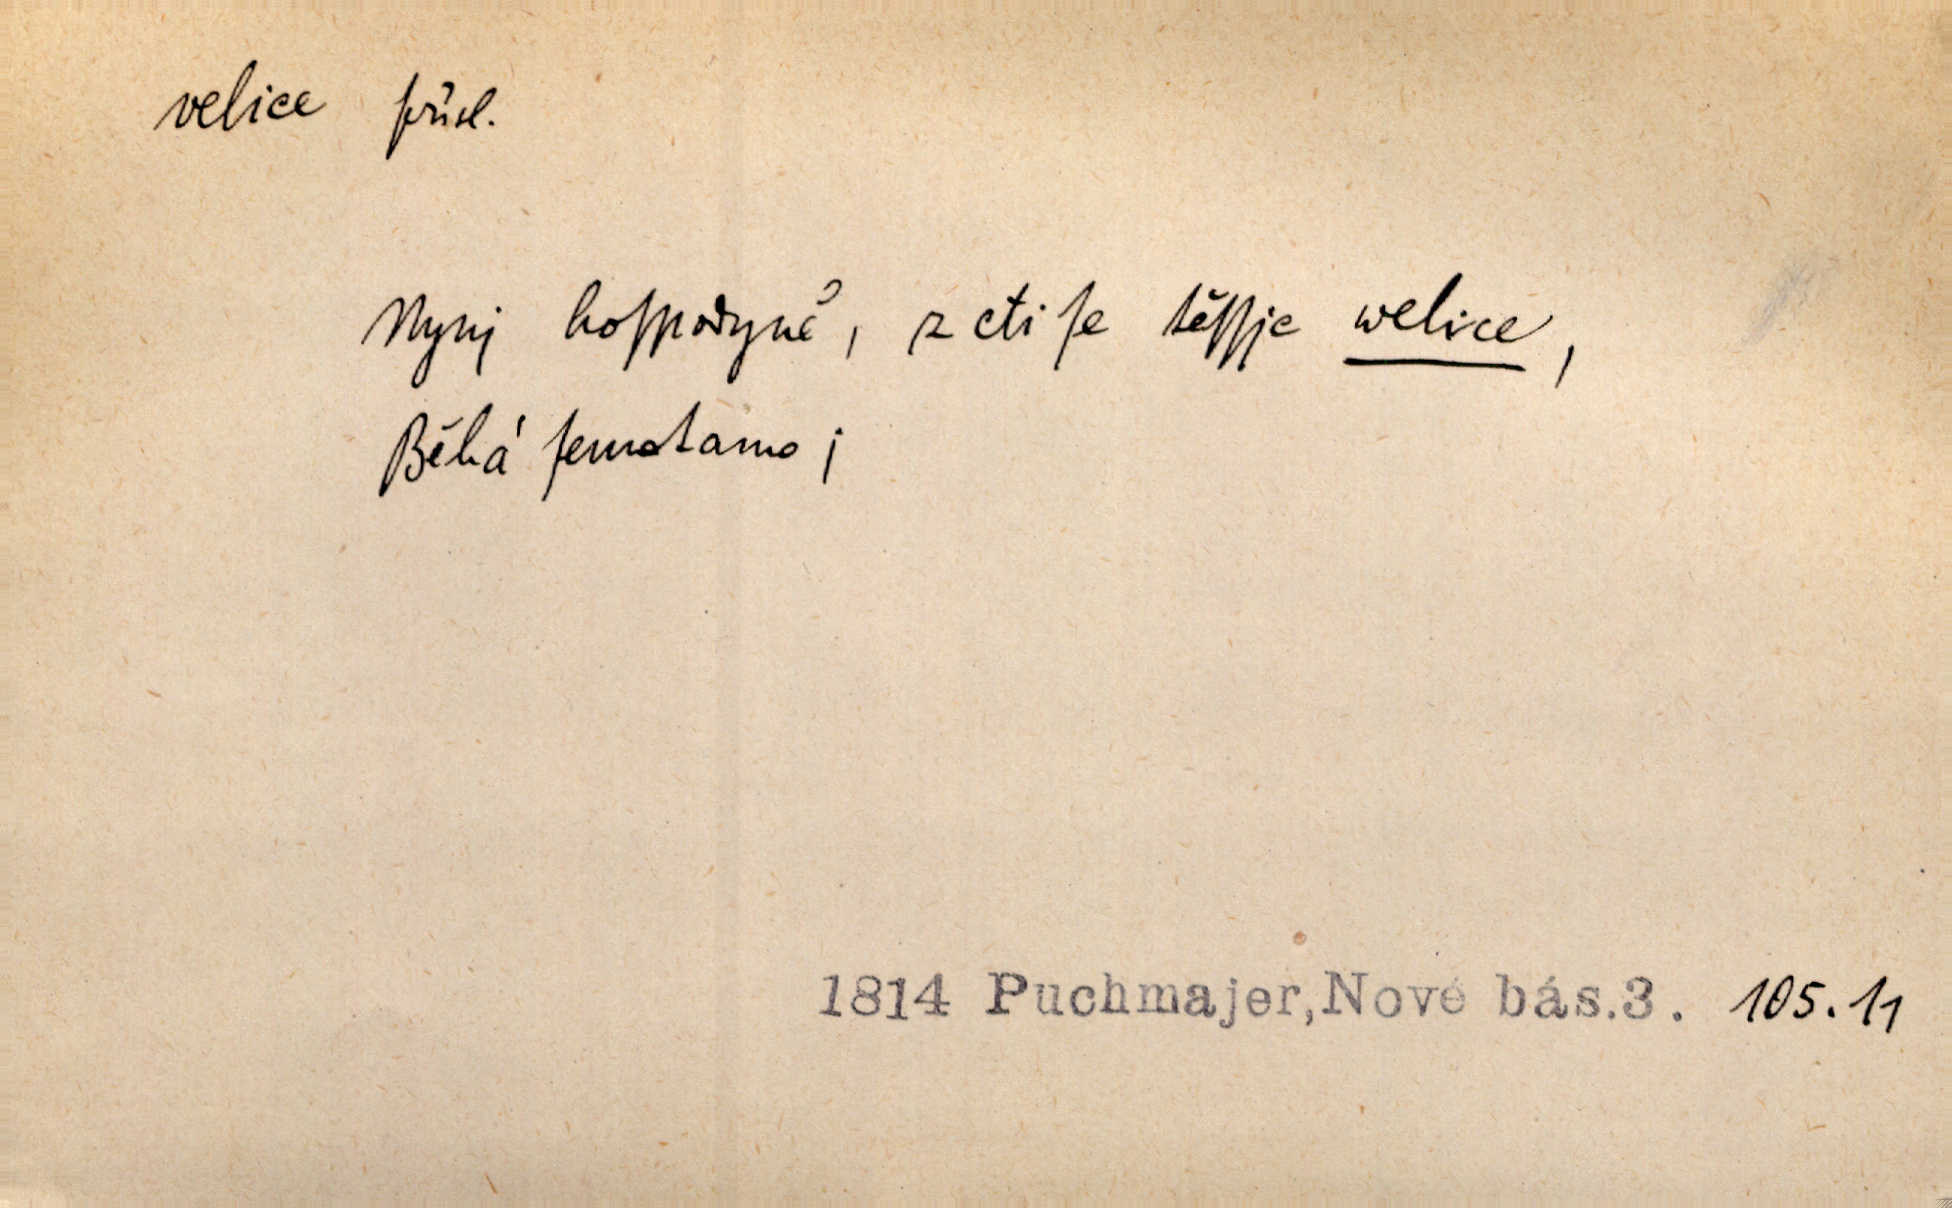 velice přísl.
Nynj hoſpodyně, z cti ſe těſſje welice,
Běhá ſemotamo;
1814 Puchmajer, Nové bás.3. 105.11